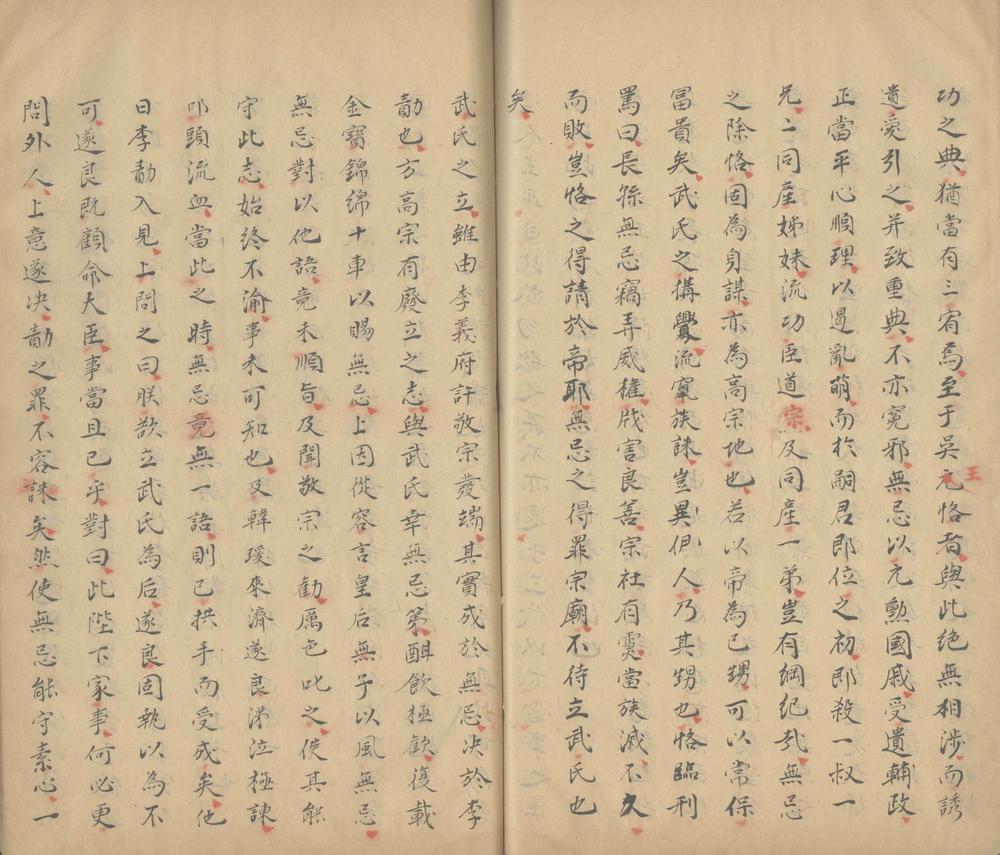 功之典猶當有三宥焉至于吳王恪者與此絶無相涉而誘
遺愛引之并致重典不亦寃邪無忌以元勲國戚受遺輔政
正當平心順理以遏亂萌而於嗣君即位之初即殺一叔一
兄二同産姊妹流功臣道宗及同産一弟豈有綱紀哉無忌
之除恪固為身謀亦為高宗地也若以帝為已甥可以常保
冨貴矣武氏之搆釁流竄族誅豈異伊人乃其甥也恪臨刑
罵曰長孫無忌竊弄威權戕害良善宗社有靈當族滅不久
而敗豈恪之得請於帝耶無忌之得罪宗廟不待立武氏也
矣
武氏之立雖由李義府許敬宗發端其實成於無忌決於李
勣也方高宗有廢立之志與武氏幸無忌第酣飲極歡復載
金寶錦綿十車以賜無忌上因從容言皇后無子以風無忌
無忌對以他語竟未順旨及聞敬宗之勸厲色叱之使其能
守此志始終不渝事未可知也及韓瑗來濟遂良涕泣極諫
叩頭流血當此之時無忌竟無一語則已拱手而受成矣他
日李勣入見上問之曰朕欲立武氏為后遂良固執以為不
可遂良既顧命大臣事當且已乎對曰此陛下家事何必更
問外人上意遂決勣之罪不容誅矣然使無忌能守素心一